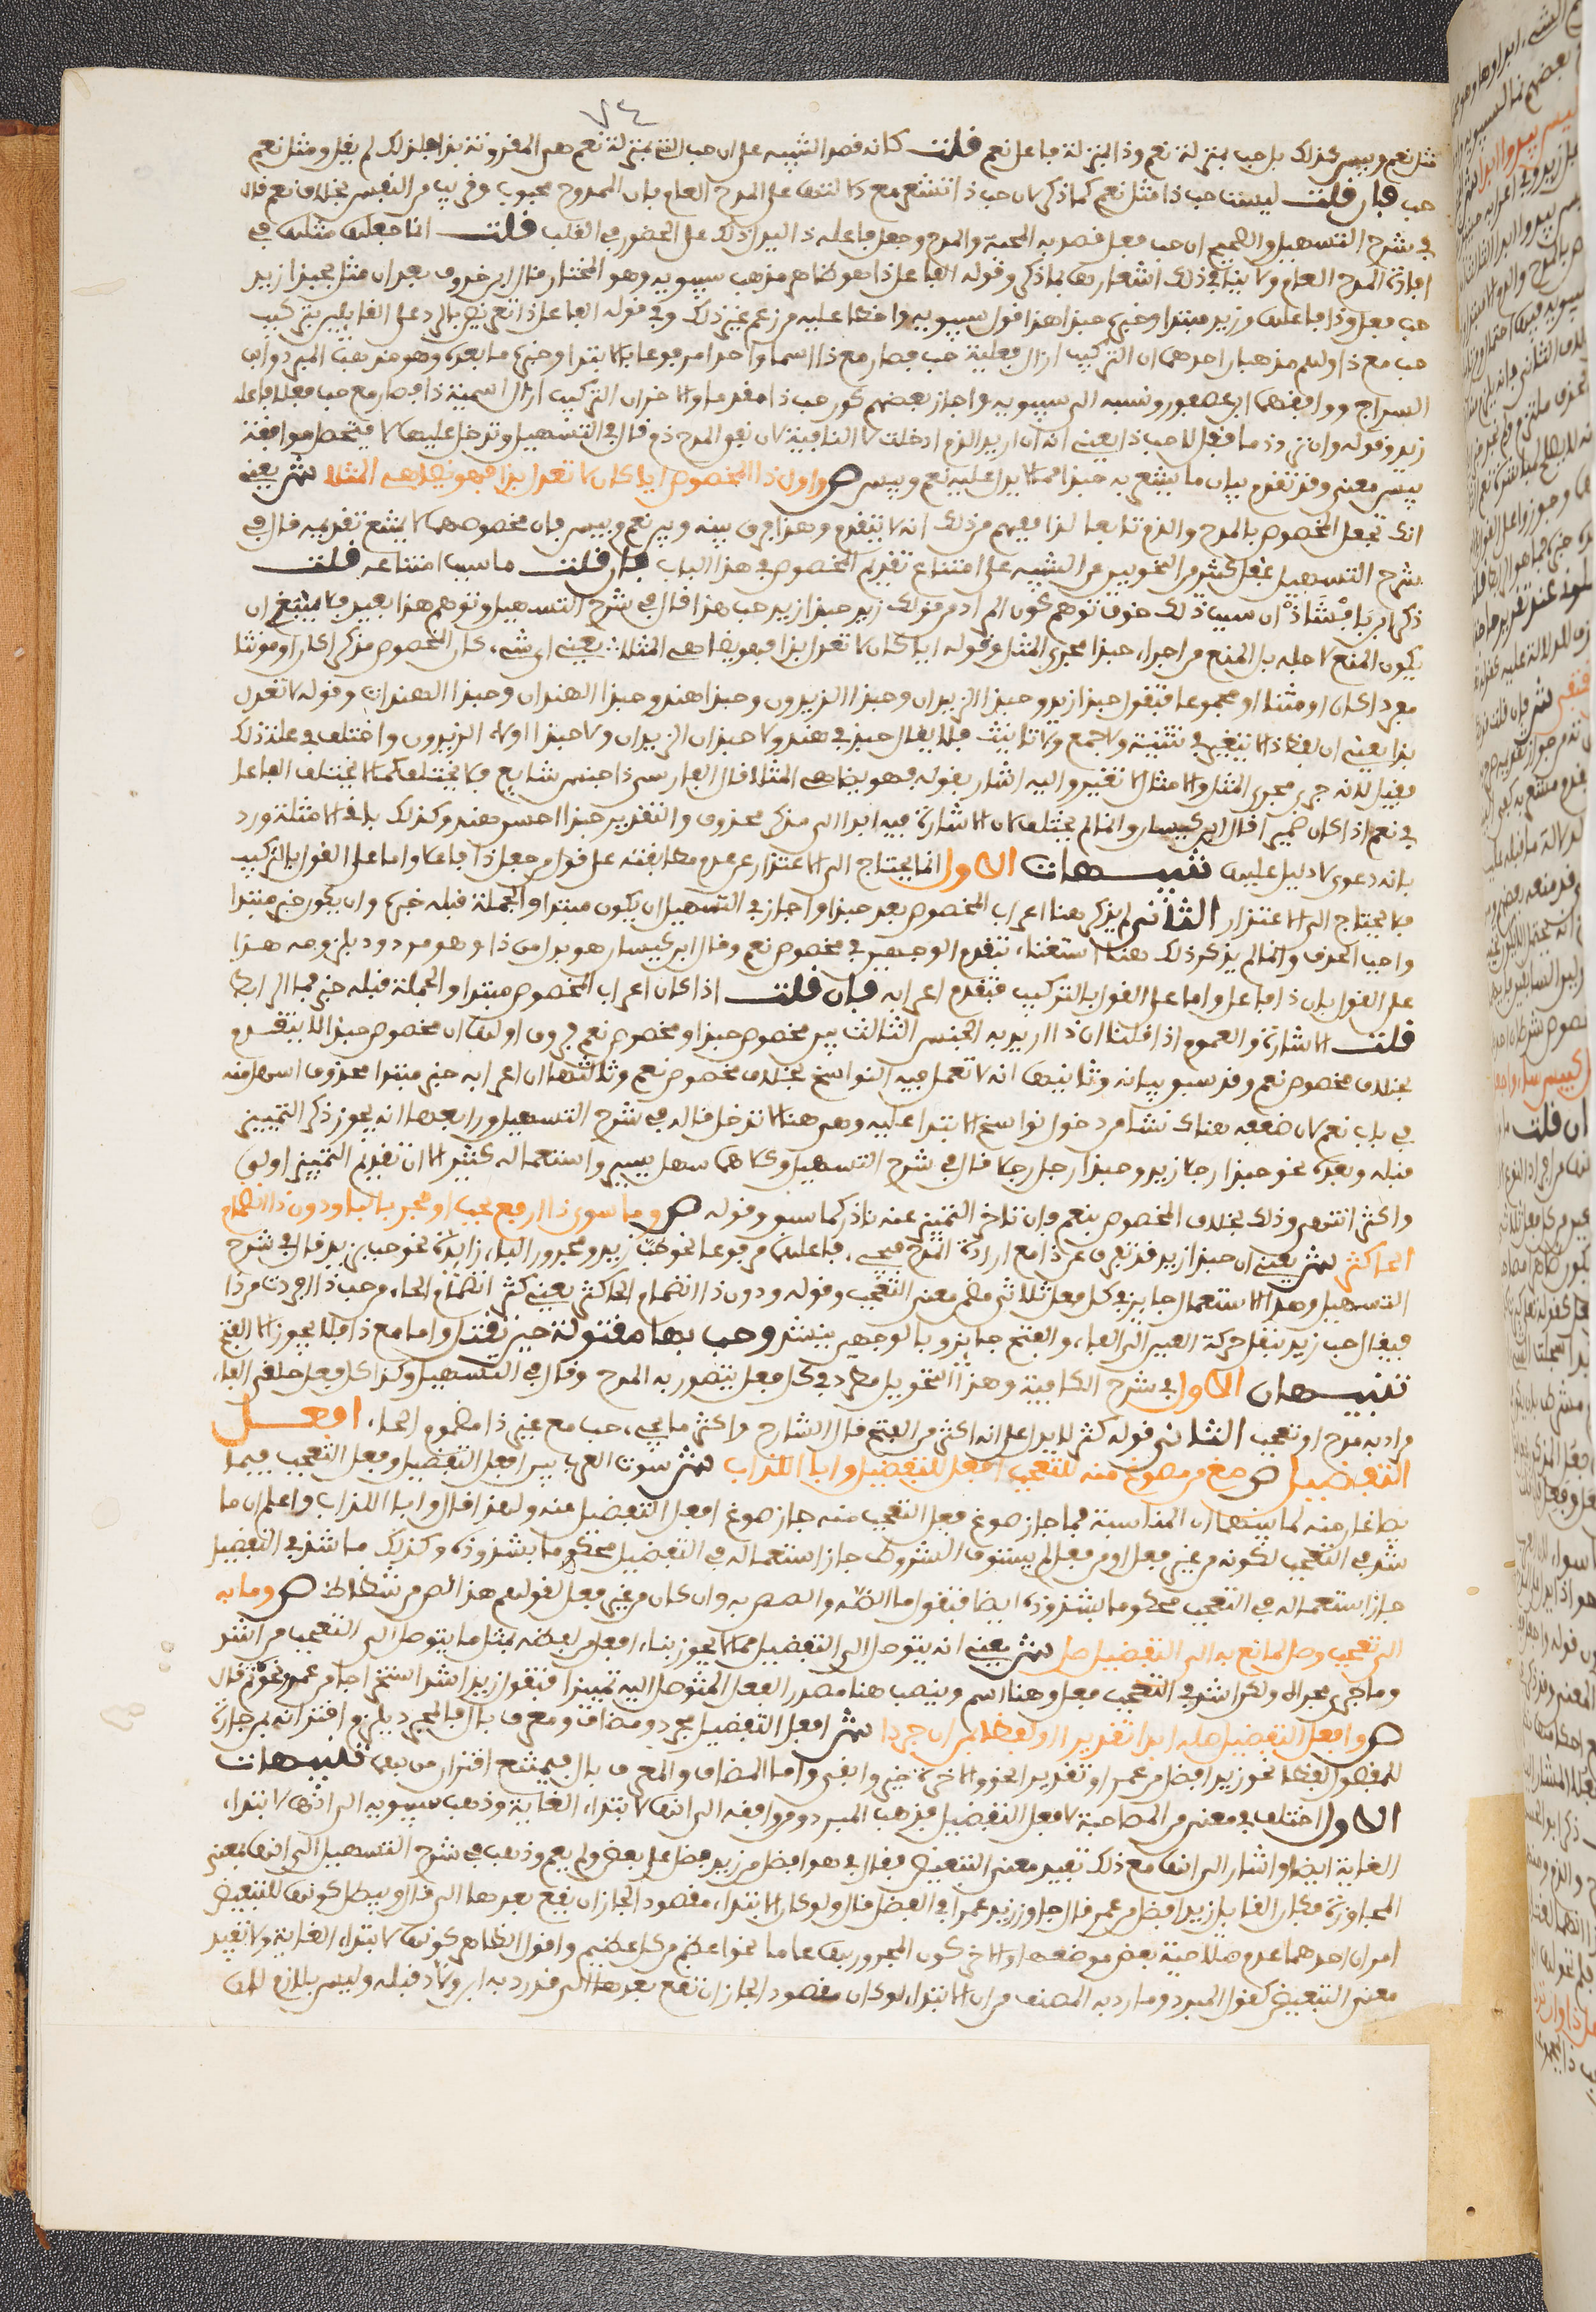 ٧٤
مثل نعم وبيس كذلك بل حب بمنزلة نعم وذا بمنزلة فاعل نعم قلت كانه قصد التنبيه على ان حب التي بمنزلة نعم هي المقرونة بذا فلذلك لم يقل ومثل نعم
حب فان قلت ليست حب ذا مثل نعم كما ذكر لان حب ذا تشعر مع دلالتها على المدح العام بان الممدوح محبوب وقريب من النفس بخلاف نعم قال
في شرح التسهيل والصحيح ان حب فعل قصد به المحبة والمدح وجعل فاعله ذا ليدل ذلك على الحضور في القلب قلت انما جعلها مثلها في
افادة المدح العام ولا ينافي ذلك اشعارها بما ذكر وقوله الفاعل ذا هو ظاهر مذهب سيبويه وهو المختار قال ابن خروف بعد ان مثل بحبذا زيد
حب فعل وذا فاعلها وزيد مبتدا وخبره حبذا هذا قول سيبويه واخطا عليه من زعم غير ذلك وفي قوله الفاعل ذا تعريض بالرد على القائلين بتركيب
حب مع ذا ولهم مذهبان احدهما ان التركيب ازال فعلية حب فصار مع ذا اسما واحدا مرفوعا بالابتدا وخبره ما بعده وهو مذهب المبرد وابن
السراج ووافقهما ابن عصفور ونسبه الى سيبويه واجاز بعضهم كون حب ذا خبرا مقدما والاخر ان التركيب ازال اسمية ذا فصار مع حب فعلا فاعله
زيد وقوله وان ترد ذما فقل لا حب ذا يعني انه ان اريد الذم ادخلت لا النافية لان نفي المدح ذم قال في التسهيل وتدخل عليها لا فتحصل موافقة
بيس معنى وقد تقدم بيان ما يشعر به حبذا مما لا يدل عليه نعم وبيس ص واول ذا المخصوص ايا كان لا تعدل بذا فهو يضاهي المثلا ش يعني
انك تجعل المخصوص بالمدح والذم تابعا لذا فيفهم من ذلك انه لا يتقدم وهذا فرق بينه وبين نعم وبيس فان مخصوصهما لا يمتنع تقديمه قال في
شرح التسهيل غفل كثير من النحويين من التنبيه على امتناع تقديم المخصوص في هذا الباب فان قلت ما سبب امتناعه قلت
ذكر ابن بابشاذ ان سبب ذلك خوف توهم كون المراد من قولك زيد حبذا زيد حب هذا قال في شرح التسهيل وتوهم هذا بعيد فلا ينبغي ان
يكون المنع لاجله بل المنع من اجراء حبذا مجرى المثل وقوله ايا كان لا تعدل بذا فهو يضاهي المثلا يعني اي شيء كان المخصوص مذكرا كان او مونثا
مفردا كان او مثنا او مجموعا فتقول حبذا زيد وحبذا الزيدان وحبذا الزيدون وحبذا هند وحبذا الهندان وحبذا الهندات وقوله لا تعدل
بذا يعني ان لفظ ذا لا يتغير في تثنية ولا جمع ولا تانيث فلا يقال حبذي في هند ولا حبذان الزيدان ولا حبذا اولاء الزيدون واختلف في علة ذلك
فقيل لانه جرى مجرى المثل والامثال لا تغير واليه اشار بقوله فهو يضاهي المثلا قال الفارسي ذا جنس شايع فلا يختلف كما لا يختلف الفاعل
في نعم اذا كان ضميرا قال ابن كيسان وانما لم يختلف لان الاشارة فيه ابدا الى مذكر محذوف والتقدير حبذا حسن هند وكذلك باقي الامثلة ورد
بانه دعوى لا دليل عليها تنبيهات الاول انما يحتاج الى الاعتذار عن عدم مطابقته على قول من جعل ذا فاعلا واما على القول بالتركيب
فلا يحتاج الى الاعتذار الثاني لم يذكر هنا اعراب المخصوص بعد حبذا واجاز في التسهيل ان يكون مبتدا والجملة قبله خبره وان يكون خبر مبتدا
واجب الحذف وانما لم يذكر ذلك هنا استغناء بتقدم الوجهين في مخصوص نعم وقال ابن كيسان هو بدل من ذا وهو مردود بلزومه هذا
على القول بان ذا فاعل واما على القول بالتركيب فتقدم اعرابه فان قلت اذا كان اعراب المخصوص مبتدا والجملة قبله خبره فما الرابط
قلت الاشارة والعموم اذا قلنا ان ذا اريد به الجنس الثالث بين مخصوص حبذا ومخصوص نعم فروق اولها ان مخصوص حبذا لا يتقدم
بخلاف مخصوص نعم وقد سبق بيانه وثانيها انه لا تعمل فيه النواسخ بخلاف مخصوص نعم وثالثها ان اعرابه خبر مبتدا محذوف اسهل منه
في باب نعم لان ضعفه هناك نشا من دخول نواسخ الابتدا عليه وهي هنا لا تدخل قاله في شرح التسهيل ورابعها انه يجوز ذكر التمييز
قبله وبعده نحو حبذا رجلا زيد وحبذا زيد رجلا قال في شرح التسهيل وكلاهما سهل يسير واستعماله كثير الا ان تقديم التمييز اولى
واكثر انتهى وذلك بخلاف المخصوص بنعم فان تاخر التمييز عنه نادر كما سبق وقوله ص وما سوى ذا ارفع بحب او فجر بالبا ودون ذا انضمام
الحا كثر ش يعني ان حبذا زيد قد تفرق من ذا مع ارادة المدح فيجيء فاعلها مرفوعا نحو حب زيد ومجرور الباء زايدة نحو حب بزيد قال في شرح
التسهيل وهذا الاستعمال جايز في كل فعل ثلاثي مضمن معنى التعجب وقوله ودون ذا انضمام الحا كثر يعني كثر انضمام الحاء من حب ذا افردت من ذا
فيقال حب زيد بنقل حركة العين الى الفاء والفتح جايز وبالوجهين ينشد وحب بها مقتولة حين تقتل واما مع ذا فلا يجوز الا الفتح
تنبيهان الاول في شرح الكافية وهذا التحويل مطرد في كل فعل يقصد به المدح وقال في التسهيل وكذا كل فعل حلقي الفاء
مراد به مدح او تعجب الثاني قوله كثر لا يدل على انه اكثر من الفتح قال الشارح واكثر ما يجيء حب مع غير ذا مضموم الحاء افعل
التفضيل ص صغ من مصوغ منه للتعجب افعل للتفضيل وابا اللذ ابي ش سوت العرب بين افعل التفضيل وفعل التعجب فيما
يصاغان منه لما بينهما من المناسبة فما جاز صوغ فعل التعجب منه جاز صوغ افعل التفضيل منه ولهذا قال وابا اللذ ابي واعلم ان ما
شذ في التعجب لكونه من غير فعل او من فعل لم يستوف الشروط جاز استعماله في التفضيل محكوما بشذوذه وكذلك ما شذ في التفضيل
جاز استعماله في التعجب محكوما بشذوذه ايضا فتقول ما الصه والصص به وان كان من غير فعل لقولهم هذا الص من شظاظ ص وما به
الى تعجب وصل لمانع به الى التفضيل صل ش يعني انه يتوصل الى التفضيل مما لا يجوز بناء افعل من لفظه بمثل ما يتوصل الى التعجب من اشد
وما جرى مجراه ولكن اشد في التعجب فعل وهنا اسم وينصب هنا مصدر الفعل المتوصل اليه تمييزا فتقول زيد اشد استخراجا من عمرو ونحوه ثم قال
ص وافعل التفضيل صله ابدا تقديرا او لفظا بمن ان جردا ش افعل التفضيل مجرد ومضاف ومعرف بال فالمجرد يلزم اقترانه بمن جارة
للمفضول لفظا نحو زيد افضل من عمرو او تقديرا نحو والاخرة خير وابقى واما المضاف والمعرف بال فيمتنع اقترانهما بها تنبيهات
الاول اختلف في معنى من المصاحبة لافعل التفضيل فذهب المبرد ومن وافقه الى انها لابتداء الغاية وذهب سيبويه الى انها لابتداء
الغاية ايضا واشار الى انها مع ذلك تفيد معنى التبعيض فقال في هو افضل من زيد فضله على بعض ولم يعم وذهب في شرح التسهيل الى انها بمعنى
المجاوزة فكان القايل زيد افضل من عمرو قال جاوز زيد عمرا في الفضل قال ولو كان الابتداء مقصودا لجاز ان يقع بعدها الى قال ويبطل كونها للتبعيض
امران احدهما عدم صلاحية بعض موضعها والاخر كون المجرور بها عاما نحو الله اعظم من كل عظيم واقول الظاهر كونها لابتداء الغاية ولا تفيد
معنى التبعيض كقول المبرد وما رد به المصنف من ان الابتداء لو كان مقصودا لجاز ان تقع بعدها الى قد رد به ابن ولاد قبله وليس بلازم لان